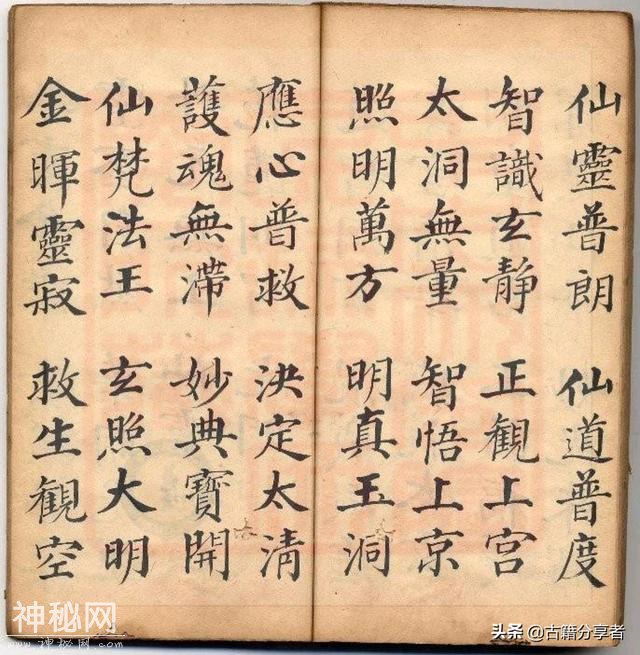 仙靈普朗 仙道普度
智識玄静 正觀上宮
太洞無量 智悟上京
照明萬方 明真玉洞
應心普救 决定太清
護魂無滞 妙典寳開
仙梵法王 玄照大明
金暉靈寂 救生觀空
神秘网
www.神秘网.com
头条 @古籍分享者